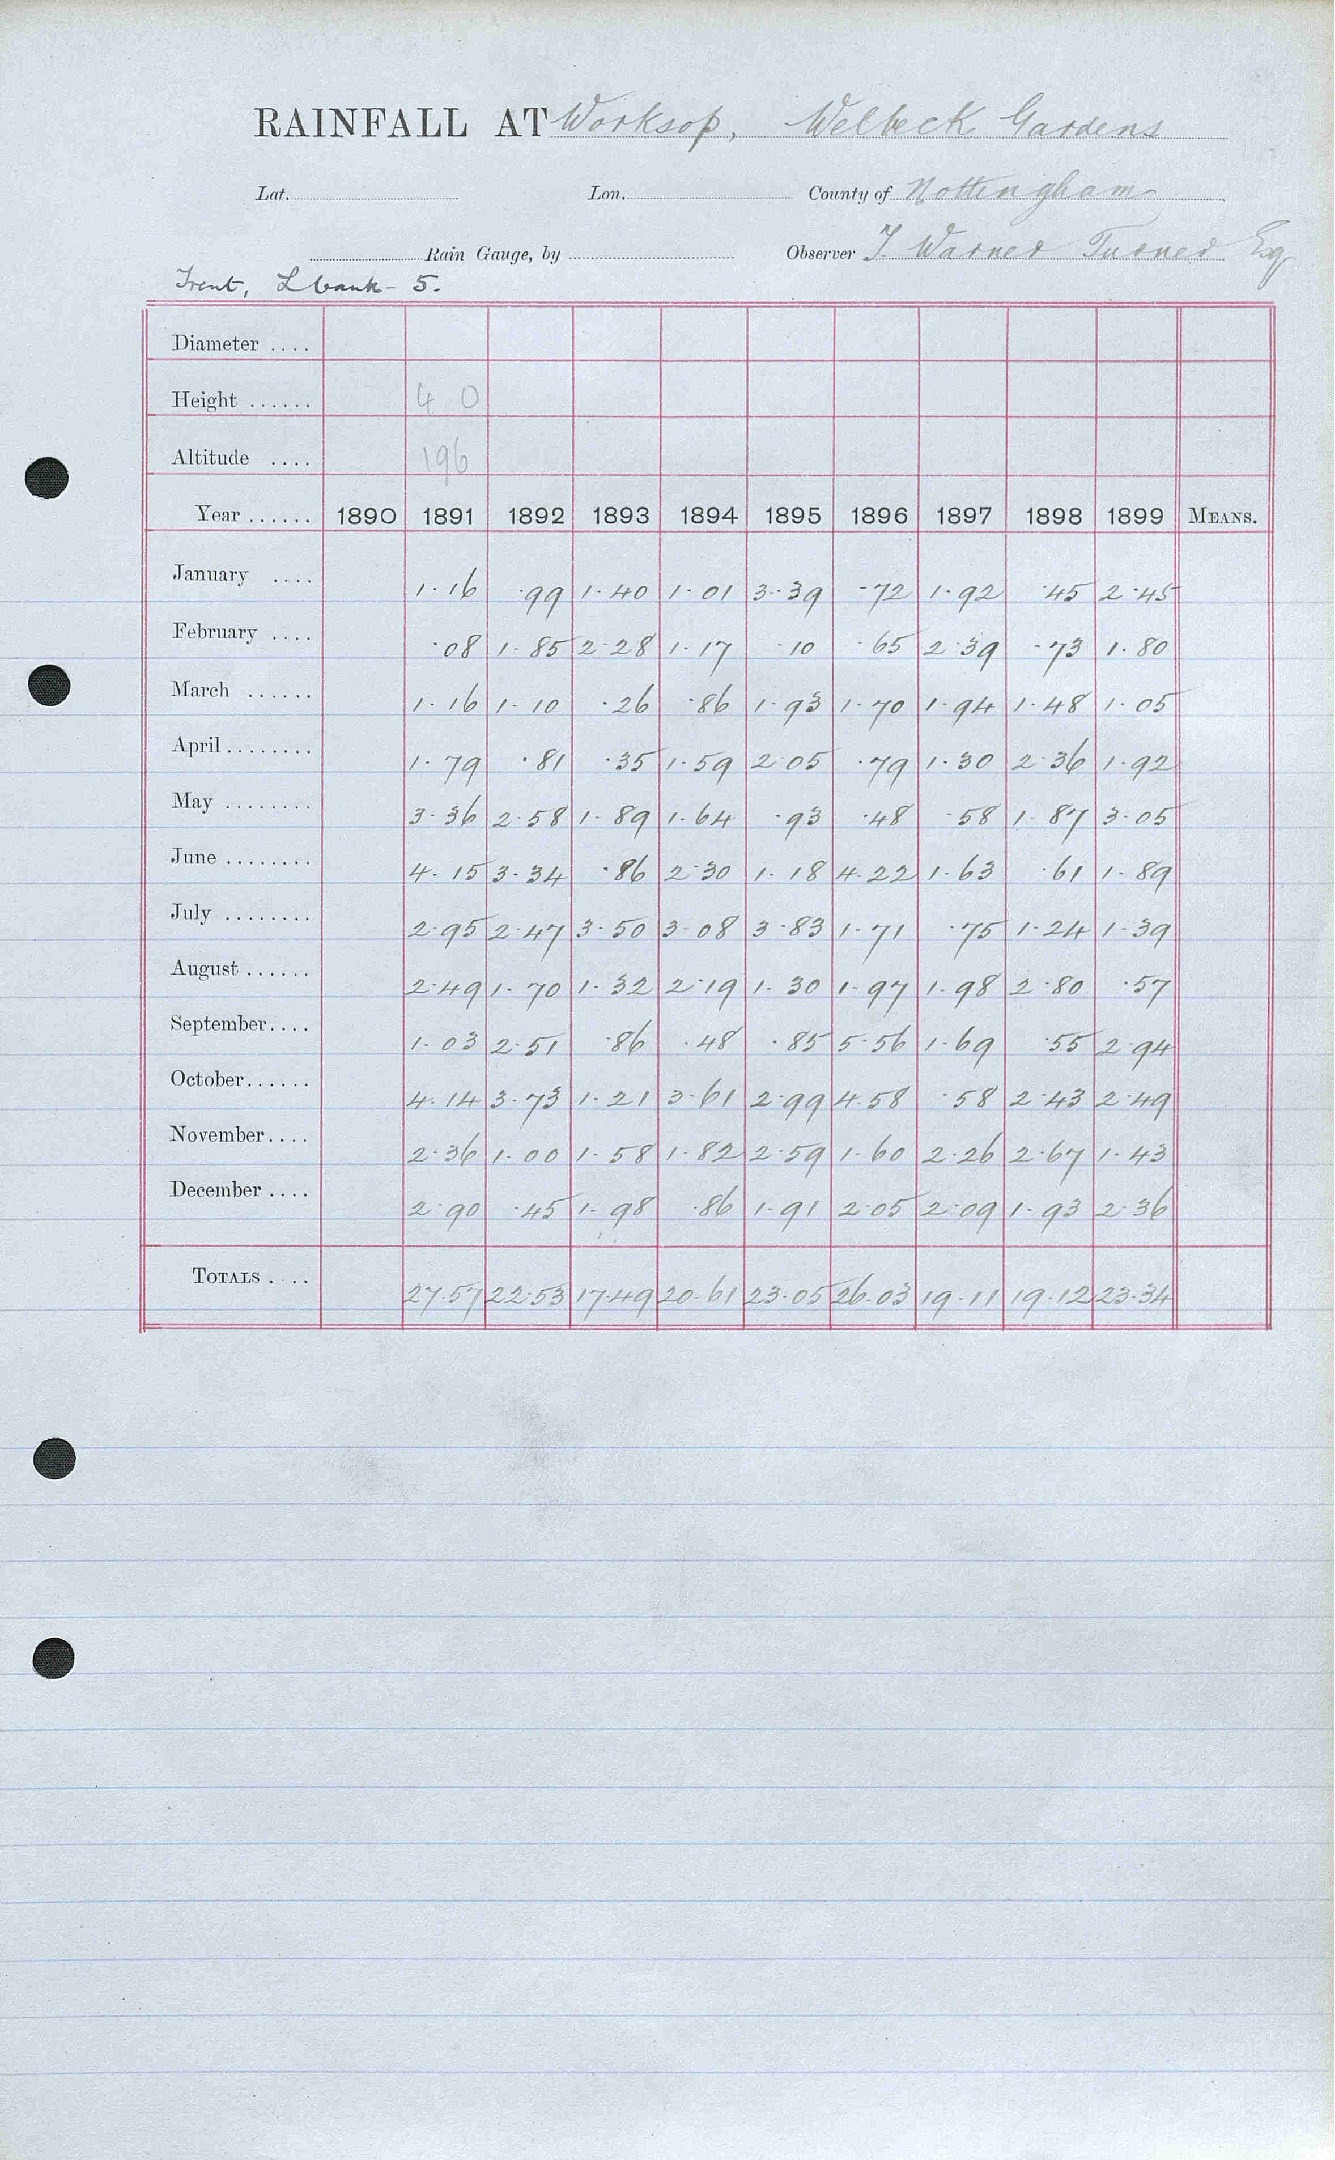 RAINFALL AT Worksop, Welbeck Gardens
Lat. Lon. County of Nottingham
Rain Gauge, by Observer T. Warner Turner Esq
Trent, L bank - 5.
Diameter ....
Height ...... 4 0
Altitude .... 196
Year ...... 1890 1891 1892 1893 1894 1895 1896 1897 1898 1899 MEANS.
January .... 1.16 .99 1.40 1.01 3.39 .72 1.92 .45 2.45
February .... .08 1.85 2.28 1.17 .10 .65 2.39 .73 1.80
March ...... 1.16 1.10 .26 .86 1.93 1.70 1.94 1.48 1.05
April ........ 1.79 .81 .35 1.59 2.05 .79 1.30 2.36 1.92
May ........ 3.36 2.58 1.89 1.64 .93 .48 .58 1.87 3.05
June ........ 4.15 3.34 .86 2.30 1.18 4.22 1.63 .61 1.89
July ........ 2.95 2.47 3.50 3.08 3.83 1.71 .75 1.24 1.39
August ...... 2.49 1.70 1.32 2.19 1.30 1.97 1.98 2.80 .57
September.... 1.03 2.51 .86 .48 .85 5.56 1.69 .55 2.94
October...... 4.14 3.73 1.21 3.61 2.99 4.58 .58 2.43 2.49
November.... 2.36 1.00 1.58 1.82 2.59 1.60 2.26 2.67 1.43
December .... 2.90 .45 1.98 .86 1.91 2.05 2.09 1.93 2.36
TOTALS .... 27.57 22.53 17.49 20.61 23.05 26.03 19.11 19.12 23.34